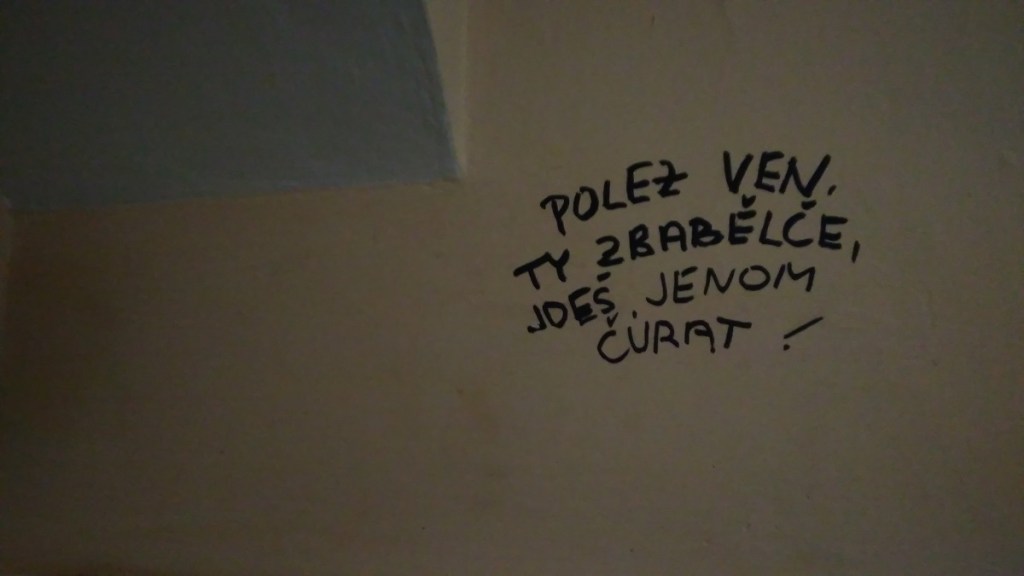 POLEZ VEN.
TY ZBABĚLČE,
JDEŠ JENOM
ČŮRAT!